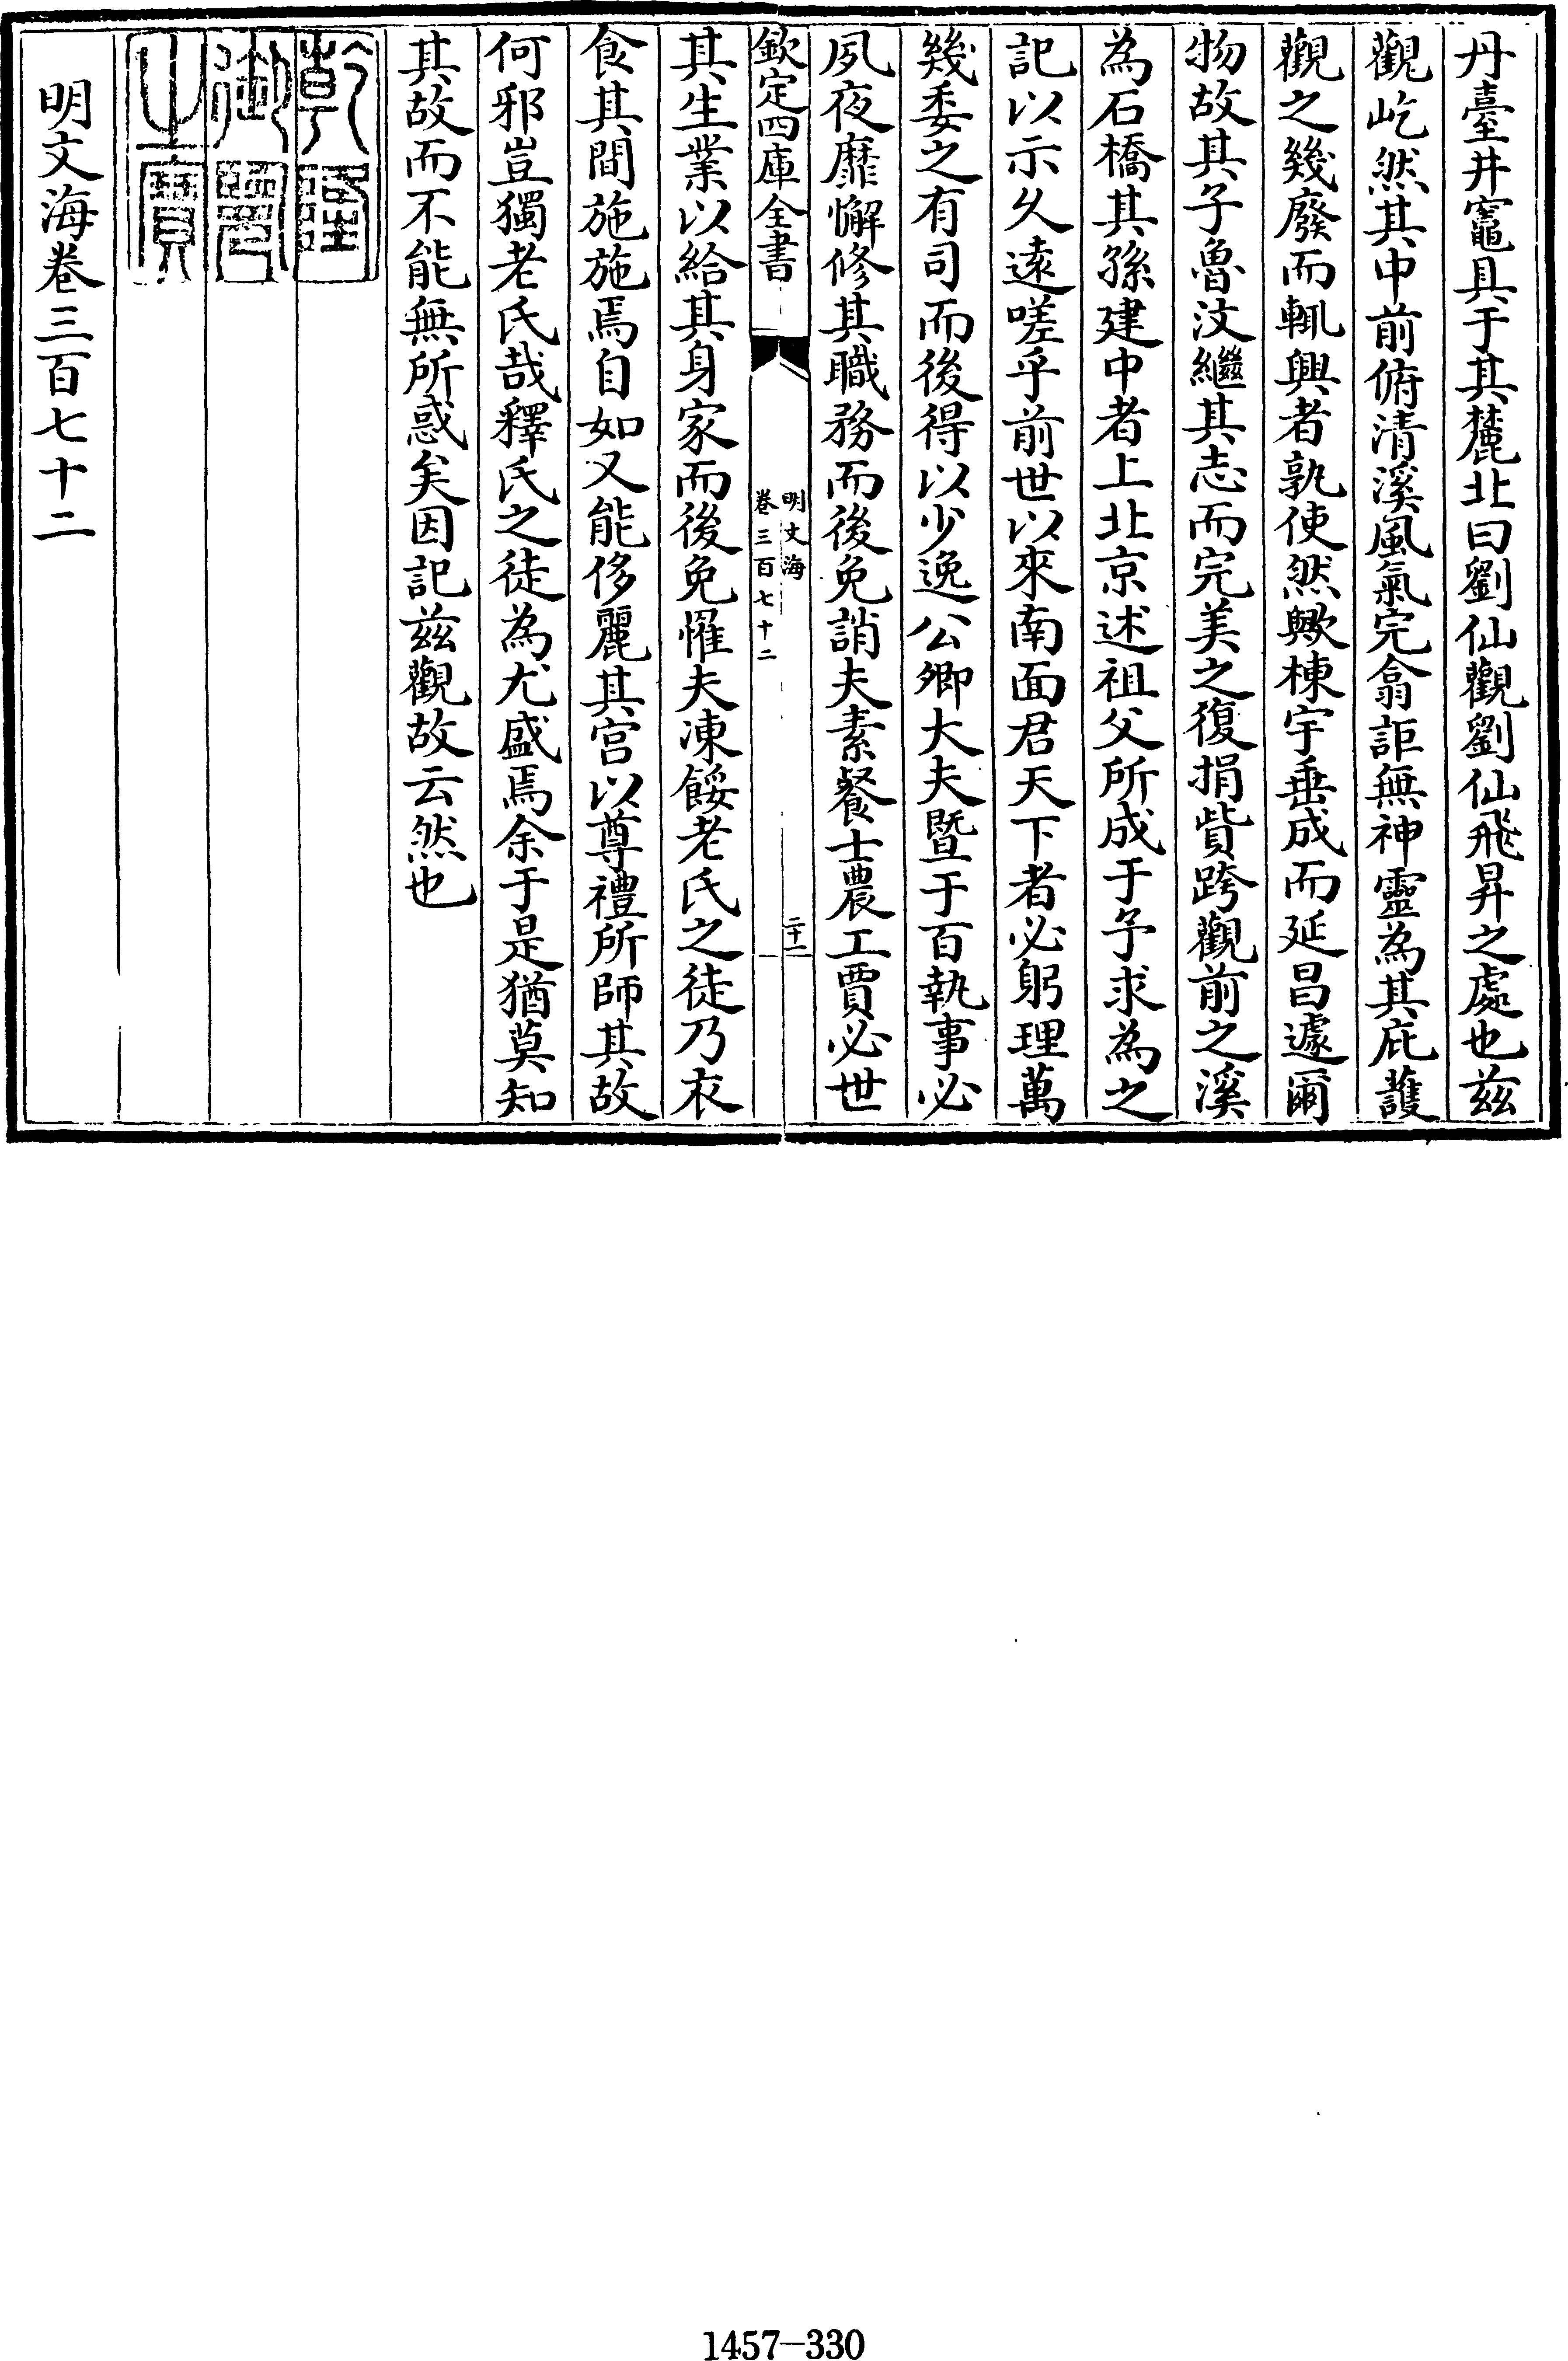 丹臺井竈具于其麓北曰劉仙觀劉仙飛昇之處也茲
觀屹然其中前俯清溪風氣完翕詎無神靈為其庇護
觀之幾廢而輒興者孰使然歟棟宇垂成而延昌遽爾
物故其子魯汶繼其志而完美之復捐貲跨觀前之溪
為石橋其孫建中者上北京述祖父所成于予求為之
記以示久遠嗟乎前世以來南面君天下者必躬理萬
幾委之有司而後得以少逸公卿大夫暨于百執事必
夙夜靡懈修其職務而後免誚夫素餐士農工賈必世
欽定四庫全書
明文海
卷三百七十二
二十一
其生業以給其身家而後免罹夫凍餒老氏之徒乃衣
食其間施施焉自如又能侈麗其宫以尊禮所師其故
何邪豈獨老氏哉釋氏之徒為尤盛焉余于是猶莫知
其故而不能無所惑矣因記茲觀故云然也
乾隆
御覽
之寶
明文海卷三百七十二
1457-330